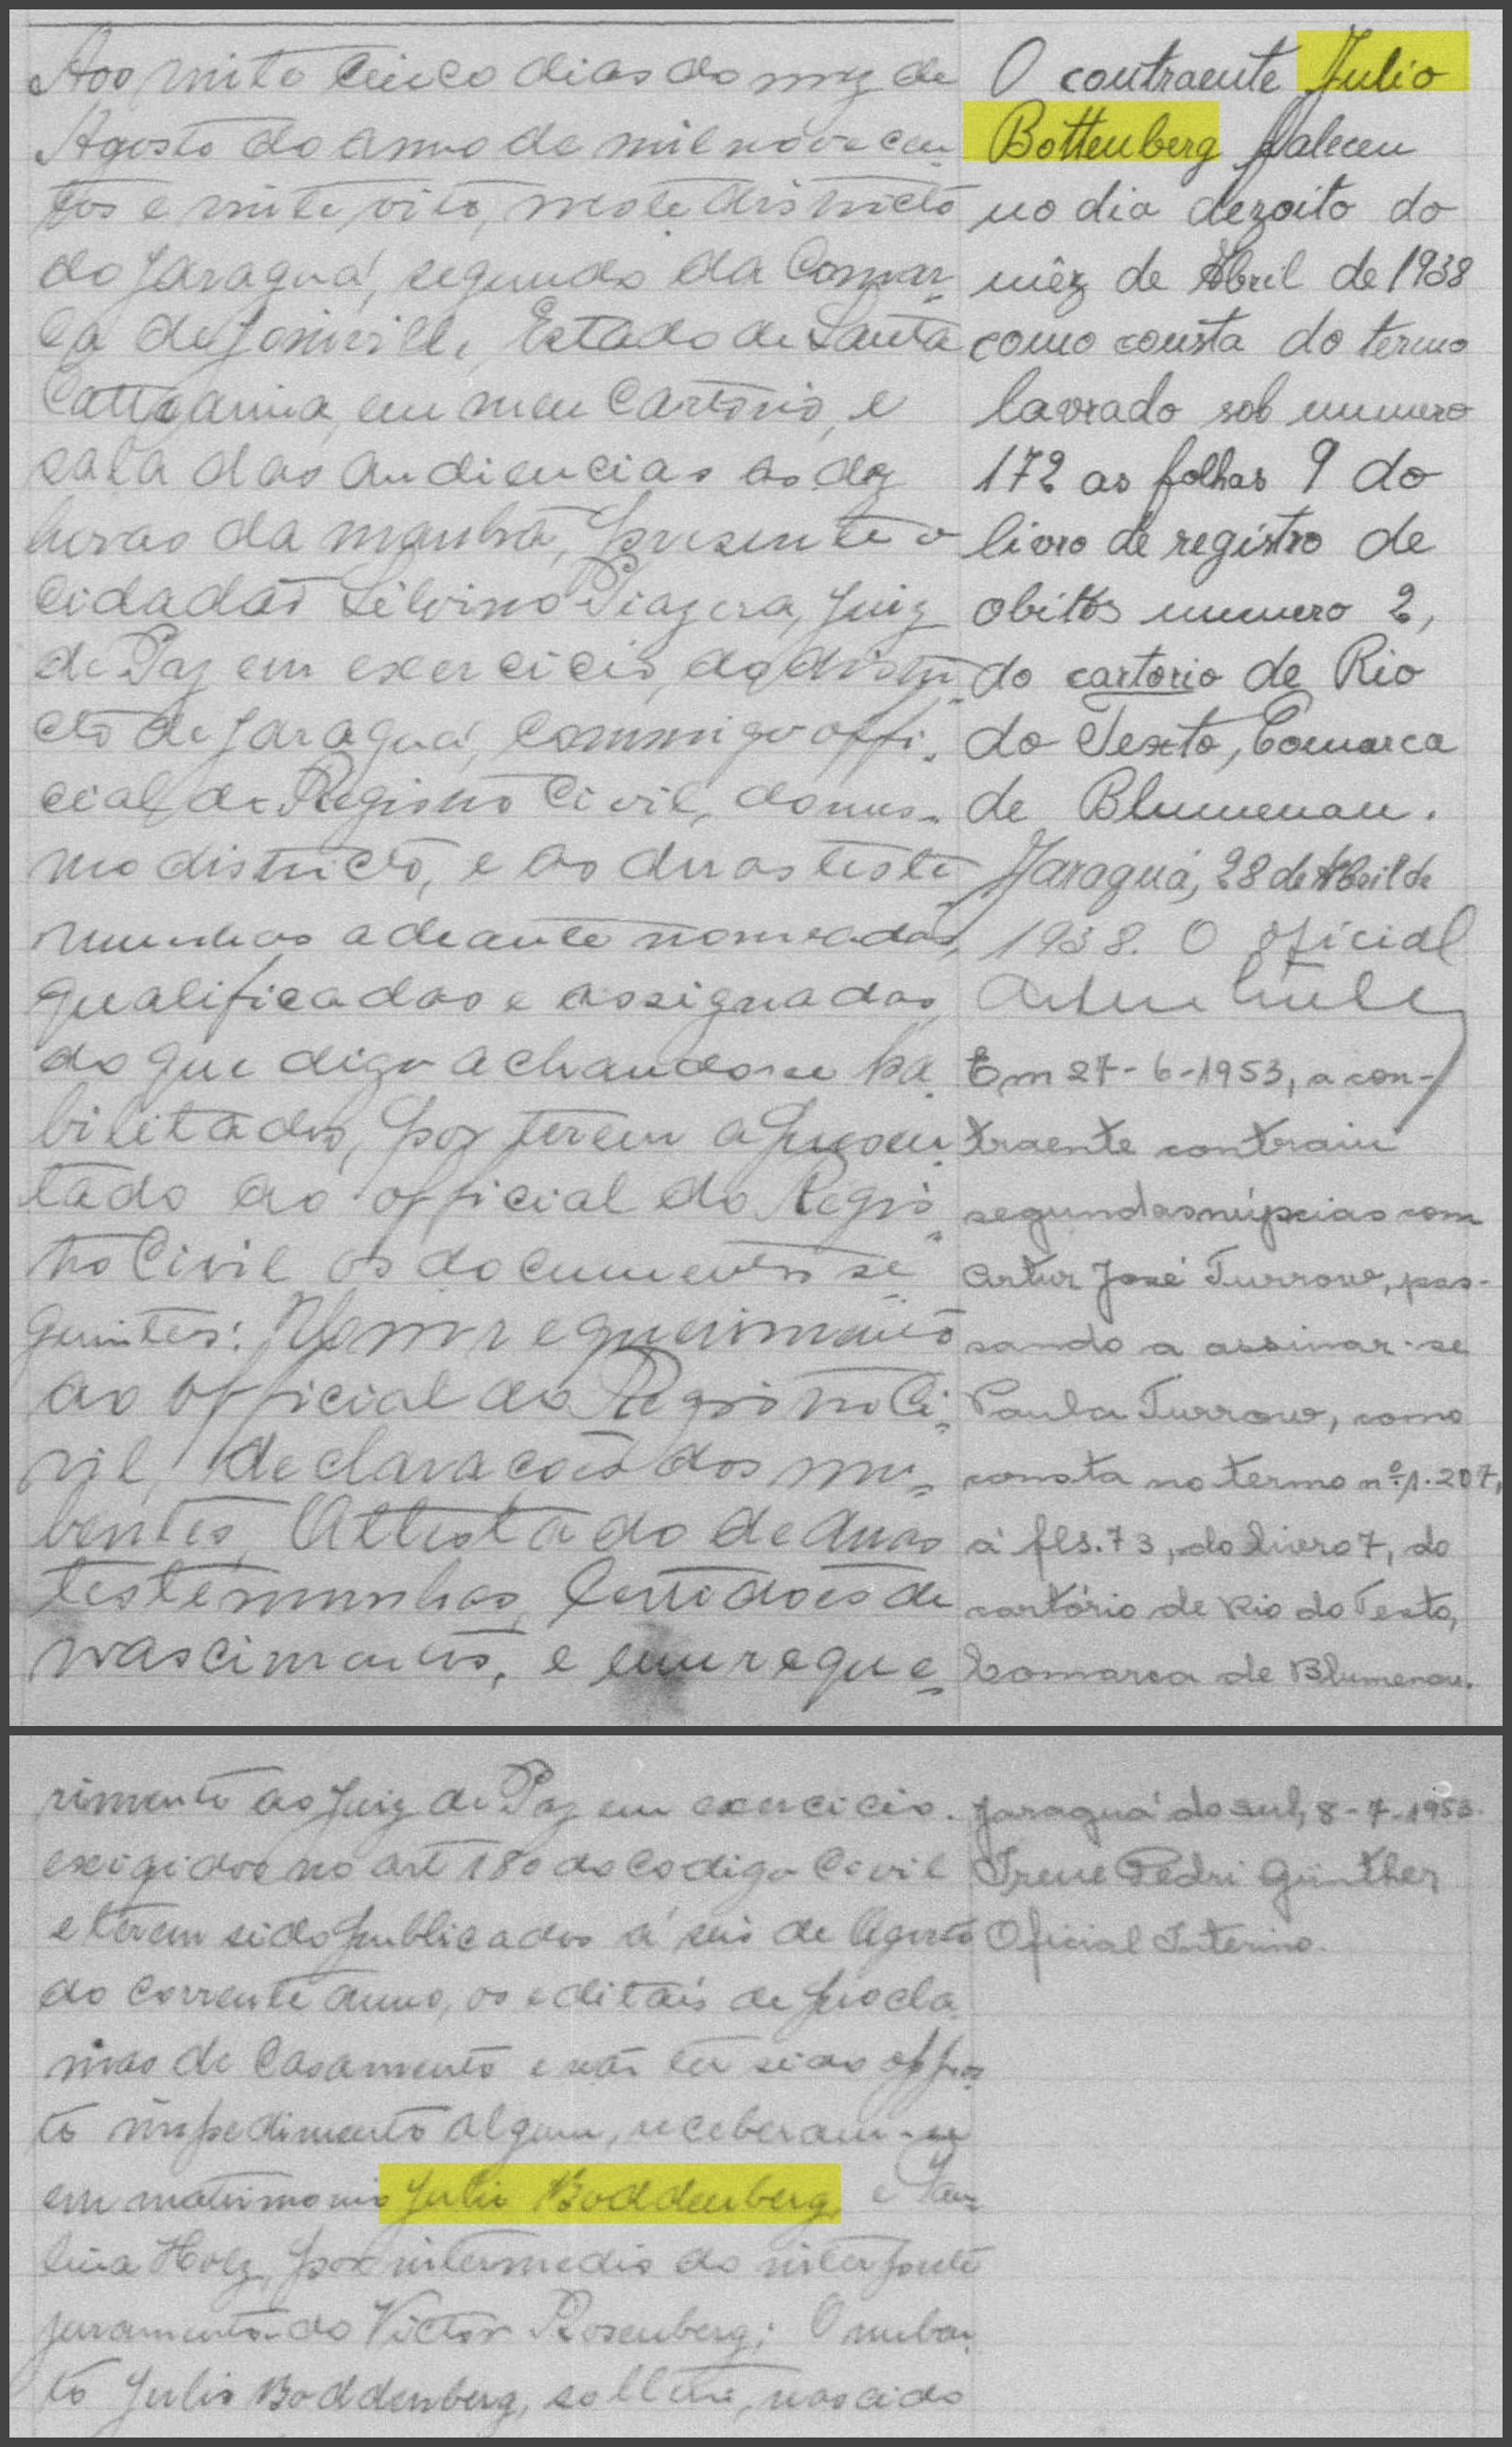 Aos vinte cinco dias do mez de
Agosto do anno de mil novecen-
tos e vinte oito, neste districto
do Jaraguá, segundo da Comar-
ca de Joinville, Estado de Santa
Catharina, em meu Cartorio, e
sala das audiencias as dez
horas da manhã, presente o
cidadão Silvino Piazera, Juiz
de Paz em exercicio, do distri-
cto de Jaraguá, commigo offi-
cial do Registro Civil, do mes-
mo districto, e as duas teste-
munhas adeante nomeadas,
qualificadas e assignadas,
do que digo achando-se ha-
bilitados, por terem apresen-
tado ao official do Regis-
tro Civil os documentos se-
guintes: Um requerimento
ao official do Registro Ci-
vil, declaração dos nu-
bentes, Attestado de duas
testemunhas, Certidões de
nascimentos, e um reque-
O contraente Julio
Bottenberg faleceu
no dia dezoito do
mêz de Abril de 1938
como consta do termo
lavrado sob numero
172 as folhas 9 do
livro de registro de
obitos numero 2,
do cartorio de Rio
do Texto, Comarca
de Blumenau.
Jaraguá, 28 de Abril de
1938. O oficial
Em 27-6-1953, a con-
traente contraiu
segundas núpcias com
Artur José Turrow, pas-
sando a assinar-se
Paula Turrow, como
consta no termo nº 1.207,
à fls. 73, do livro 7, do
cartório de Rio do Testo,
Comarca de Blumenau.
rimento ao Juiz de Paz em exercicio.
exigidos no art 180 do Codigo Civil
e terem sido publicados á seis de Agosto
do corrente anno, os editais de procla-
mas de Casamento e não ter sido oppos-
to impedimento algum, receberam-se
em matrimonio Julio Boddenberg, e Pau-
lina Holz, por intermedio do interprete
juramentado Victor Rosenberg; O nuben-
te Julio Boddenberg, solteiro, nascido
Jaraguá do Sul, 8-7-1953.
Irene Pedri Günther
Oficial Interino.